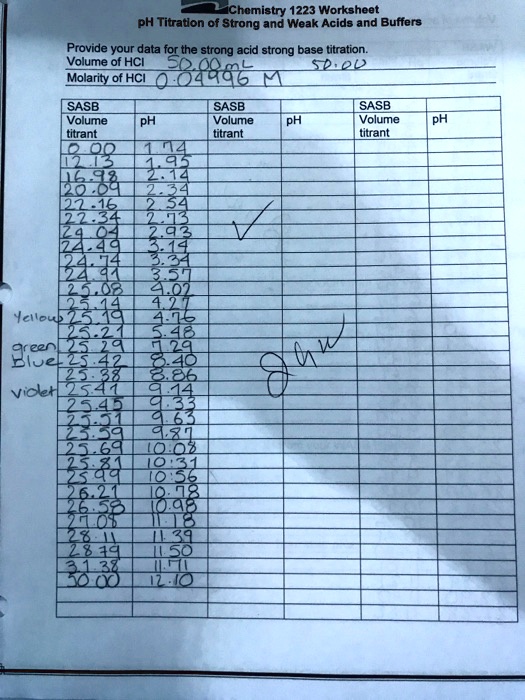 Chemistry 1223 Worksheet
pH Titration of Strong and Weak Acids and Buffers
Provide your data for the strong acid strong base titration.
Volume of HCl 50.00 mL 50.00
Molarity of HCl 0.04996 M
SASB Volume titrant pH SASB Volume titrant pH SASB Volume titrant pH
0.00 1.74
12.13 1.95
16.98 2.14
20.09 2.34
22.16 2.54
22.34 2.73
24.04 2.93
24.49 3.14
24.74 3.34
24.91 3.57
25.08 4.02
25.14 4.27
Yellow 25.19 4.76
25.21 5.48
green 25.29 7.29
Blue 25.42 8.40
25.38 8.86
violet 25.41 9.14
25.45 9.33
25.51 9.63
25.59 9.87
25.69 10.08
25.81 10.31
25.99 10.56
26.21 10.78
26.58 10.98
27.08 11.18
28.11 11.39
28.79 11.50
31.38 11.71
50.00 12.10